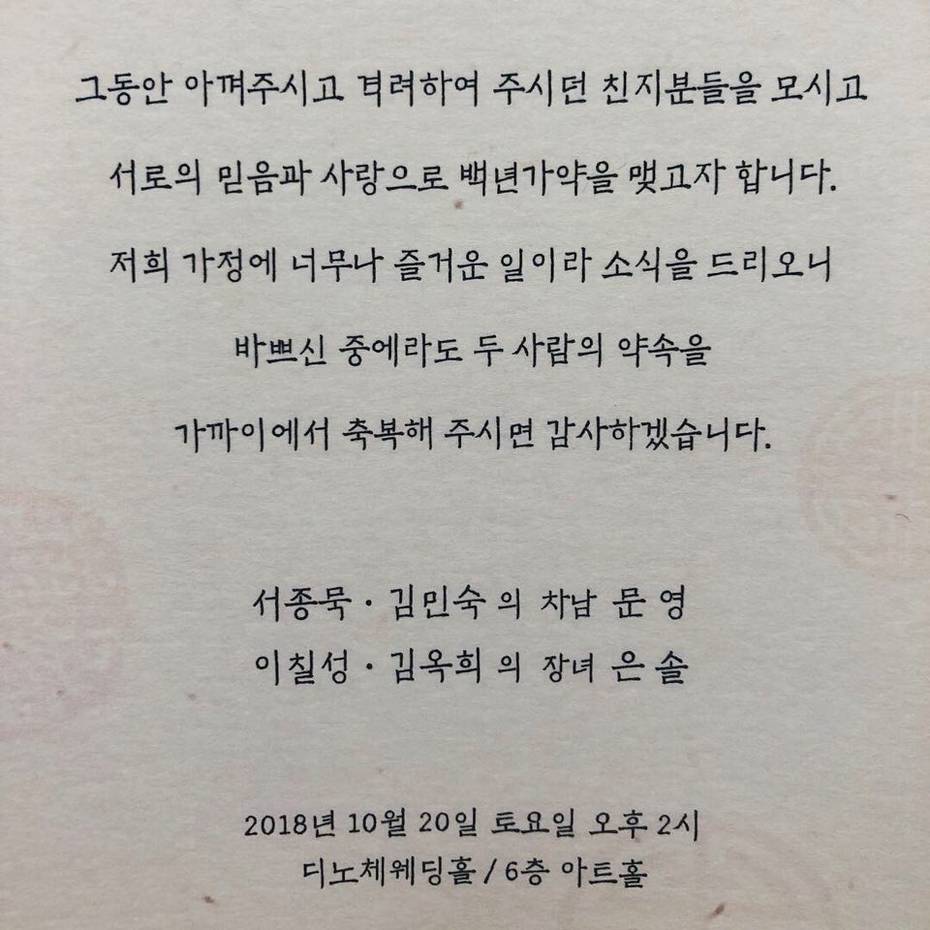 그동안 아껴주시고 격려하여 주시던 친지분들을 모시고
서로의 믿음과 사랑으로 백년가약을 맺고자 합니다.
저희 가정에 너무나 즐거운 일이라 소식을 드리오니
바쁘신 중에라도 두 사람의 약속을
가까이에서 축복해 주시면 감사하겠습니다.
서종묵 · 김민숙 의 차남 문 영
이칠성 · 김옥희 의 장녀 은 솔
2018년 10월 20일 토요일 오후 2시
디노체웨딩홀 / 6층 아트홀